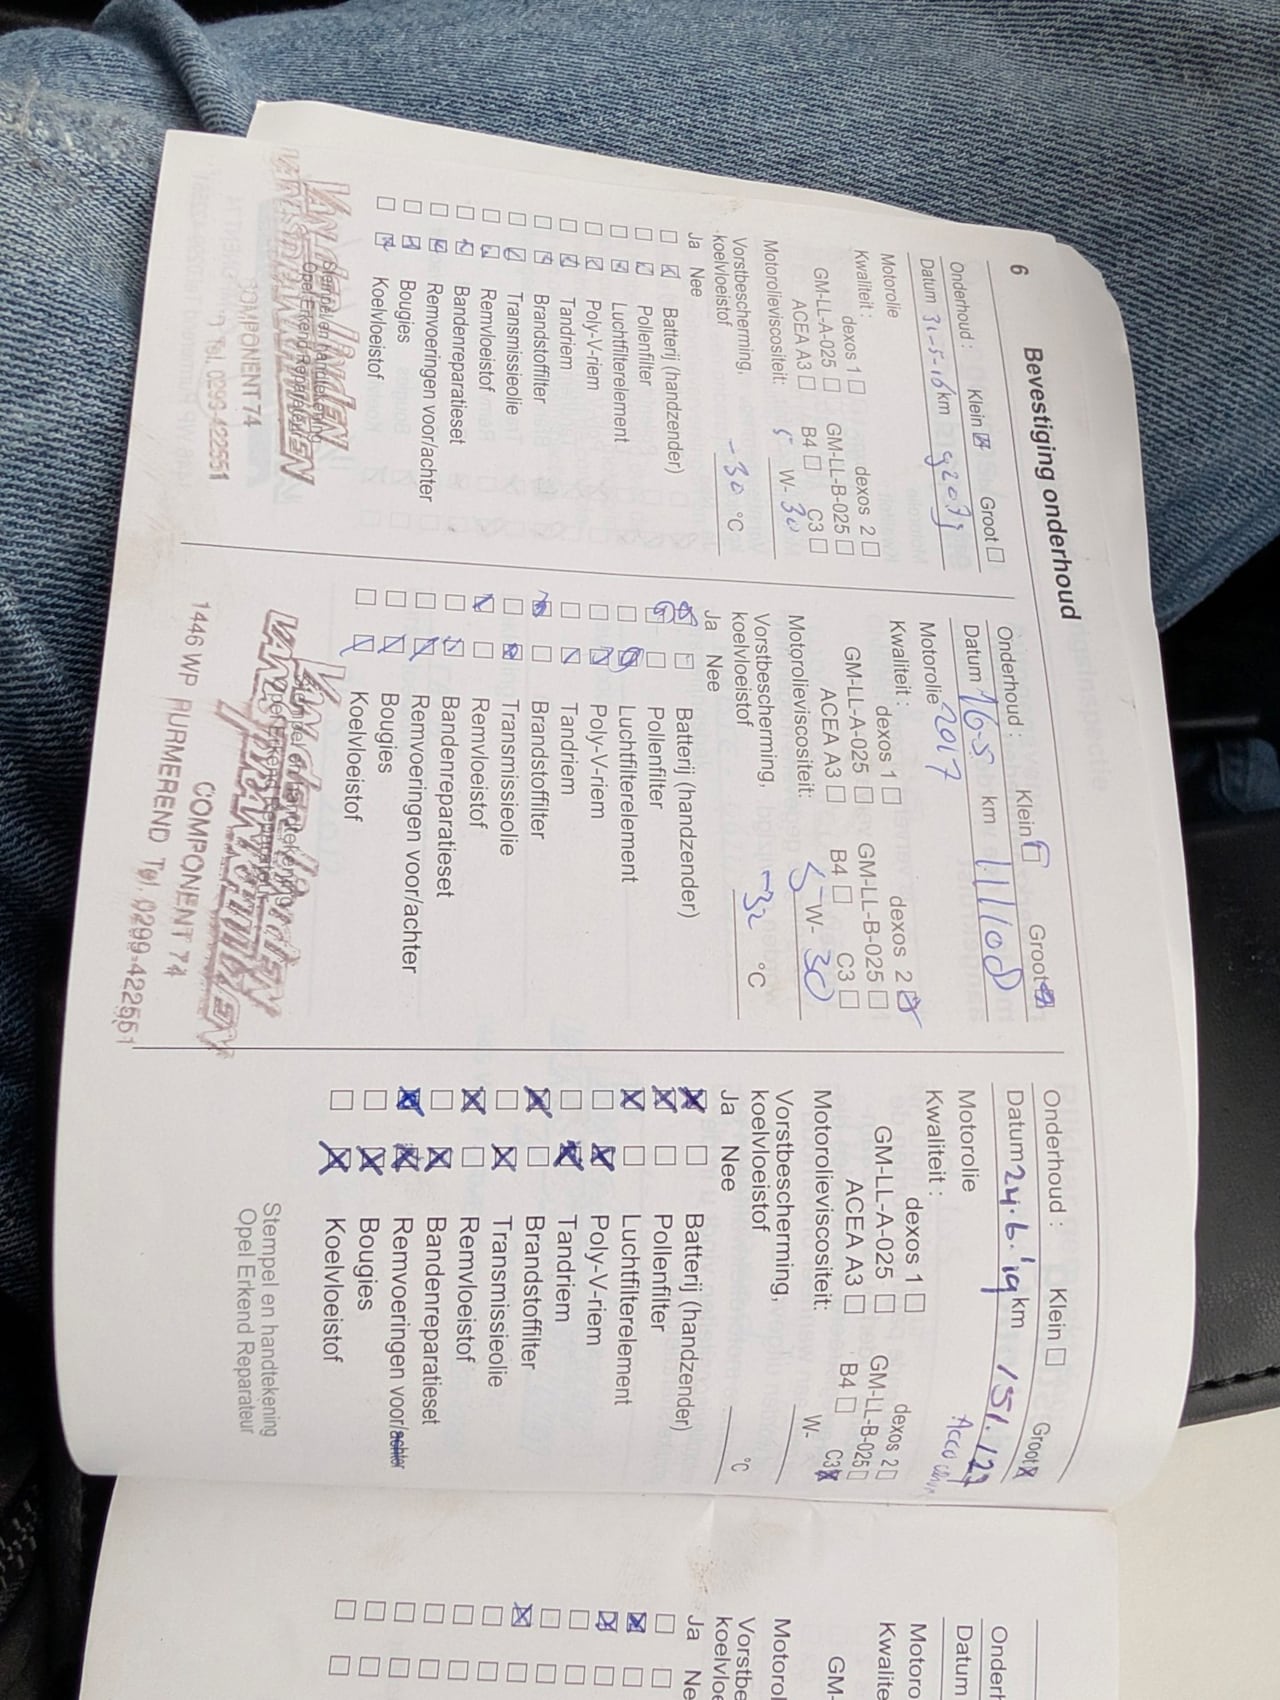 6 Bevestiging onderhoud
Onderhoud : Klein Groot
Datum 31-5-16 km 92079
Motorolie
Kwaliteit : dexos 1 dexos 2
GM-LL-A-025 GM-LL-B-025
ACEA A3 B4 C3
Motorolieviscositeit: 5 W- 30
Vorstbescherming,
koelvloeistof -30 °C
Ja Nee
Batterij (handzender)
Pollenfilter
Luchtfilterelement
Poly-V-riem
Tandriem
Brandstoffilter
Transmissieolie
Remvloeistof
Bandenreparatieset
Remvoeringen voor/achter
Bougies
Koelvloeistof
Stempel en handtekening
Opel Erkend Reparateur
Van der Linden
COMPONENT 74
Tel. 0299-422551
Onderhoud : Klein Groot
Datum 16-5 km 111108
Motorolie 2017
Kwaliteit : dexos 1 dexos 2
GM-LL-A-025 GM-LL-B-025
ACEA A3 B4 C3
Motorolieviscositeit: 5 W- 30
Vorstbescherming,
koelvloeistof -32 °C
Ja Nee
Batterij (handzender)
Pollenfilter
Luchtfilterelement
Poly-V-riem
Tandriem
Brandstoffilter
Transmissieolie
Remvloeistof
Bandenreparatieset
Remvoeringen voor/achter
Bougies
Koelvloeistof
Stempel en handtekening
Opel Erkend Reparateur
Van der Linden
COMPONENT 74
1446 WP PURMEREND Tel. 0299-422551
Onderhoud : Klein Groot
Datum 24.6.'19 km 151.127
Motorolie
Kwaliteit : dexos 1 dexos 2
GM-LL-A-025 GM-LL-B-025
ACEA A3 B4 C3
Motorolieviscositeit: W-
Vorstbescherming,
koelvloeistof °C
Ja Nee
Batterij (handzender)
Pollenfilter
Luchtfilterelement
Poly-V-riem
Tandriem
Brandstoffilter
Transmissieolie
Remvloeistof
Bandenreparatieset
Remvoeringen voor/achter
Bougies
Koelvloeistof
Stempel en handtekening
Opel Erkend Reparateur
Onderh
Datum
Motoro
Kwalite
GM-
Motorol
Vorstbe
koelvloe
Ja Ne